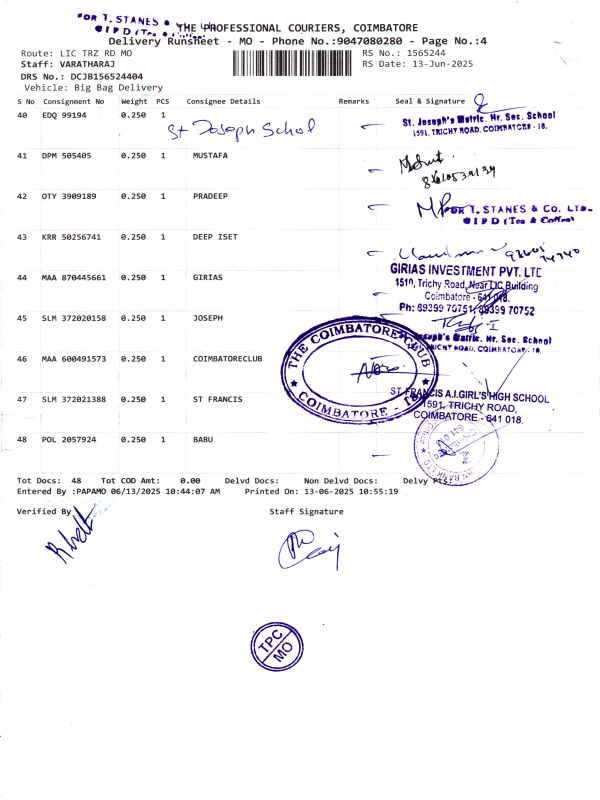 FOR T. STANES &
THE PROFESSIONAL COURIERS, COIMBATORE
Delivery Runsheet - MO - Phone No.:9047080280 - Page No.:4
Route: LIC TRZ RD MO
RS No.: 1565244
Staff: VARATHARAJ
RS Date: 13-Jun-2025
DRS No.: DCJB156524404
Vehicle: Big Bag Delivery
S No Consignment No Weight PCS Consignee Details Remarks Seal & Signature
40 EDQ 99194 0.250 1 St Joseph School
St. Joseph's Matric. Hr. Sec. School
1591, TRICHY ROAD, COIMBATORE - 18.
41 DPM 505405 0.250 1 MUSTAFA
42 OTY 3909189 0.250 1 PRADEEP
FOR T. STANES & CO. LTD.
C I P D (Tea & Coffee)
43 KRR 50256741 0.250 1 DEEP ISET
44 MAA 870445661 0.250 1 GIRIAS
GIRIAS INVESTMENT PVT. LTD
1510, Trichy Road, Near LIC Building
Coimbatore - 641 018.
Ph: 89399 70751, 89399 70752
45 SLM 372020158 0.250 1 JOSEPH
Joseph's Matric. Hr. Sec. School
TRICHY ROAD, COIMBATORE - 18.
46 MAA 600491573 0.250 1 COIMBATORECLUB
THE COIMBATORE CLUB
COIMBATORE - 18
47 SLM 372021388 0.250 1 ST FRANCIS
ST FRANCIS A.I.GIRL'S HIGH SCHOOL
1591, TRICHY ROAD,
COIMBATORE - 641 018.
48 POL 2057924 0.250 1 BABU
Tot Docs: 48 Tot COD Amt: 0.00 Delvd Docs: Non Delvd Docs: Delvy Pts:
Entered By :PAPAMO 06/13/2025 10:44:07 AM Printed On: 13-06-2025 10:55:19
Verified By Staff Signature
TPC
MO